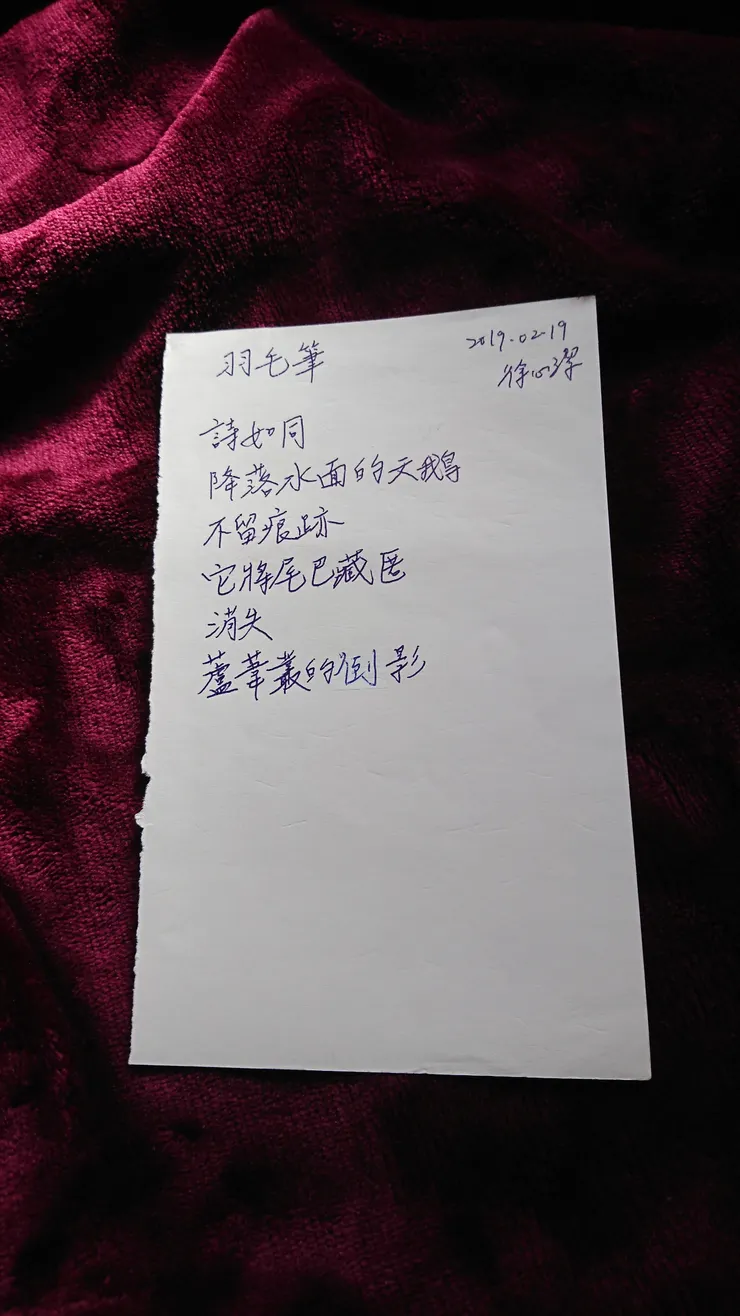 羽毛筆
2019.02.19
徐心潔
詩如同
降落水面的天鵝
不留痕跡
它將尾巴藏匿
消失
蘆葦叢的倒影